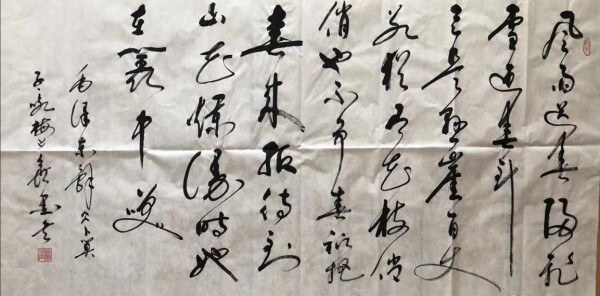 风雨送春归飛
雪迎春到
已是悬崖百丈
冰犹有花枝俏
俏也不争春祇把
春来报待到
山花烂漫时她
在叢中笑
毛泽东辞卜算
子咏梅